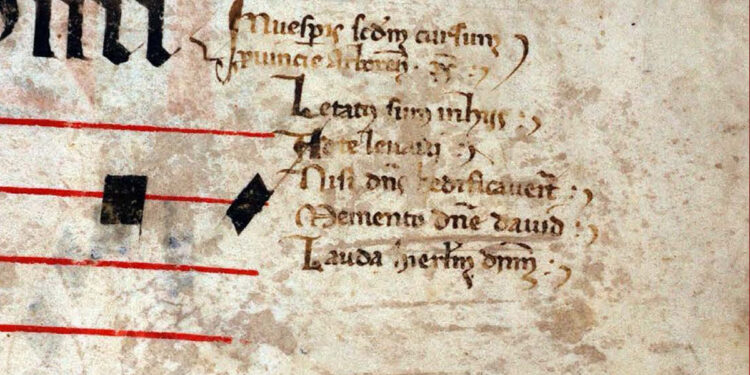 In vesp̅is scd̅m cursum
prouincie
Letatus sum in hijs :
Ad te leuaui :
Nisi dn̅s hedificauerit :
Memento dn̅e dauid :
Lauda hierl̅m dn̅m :